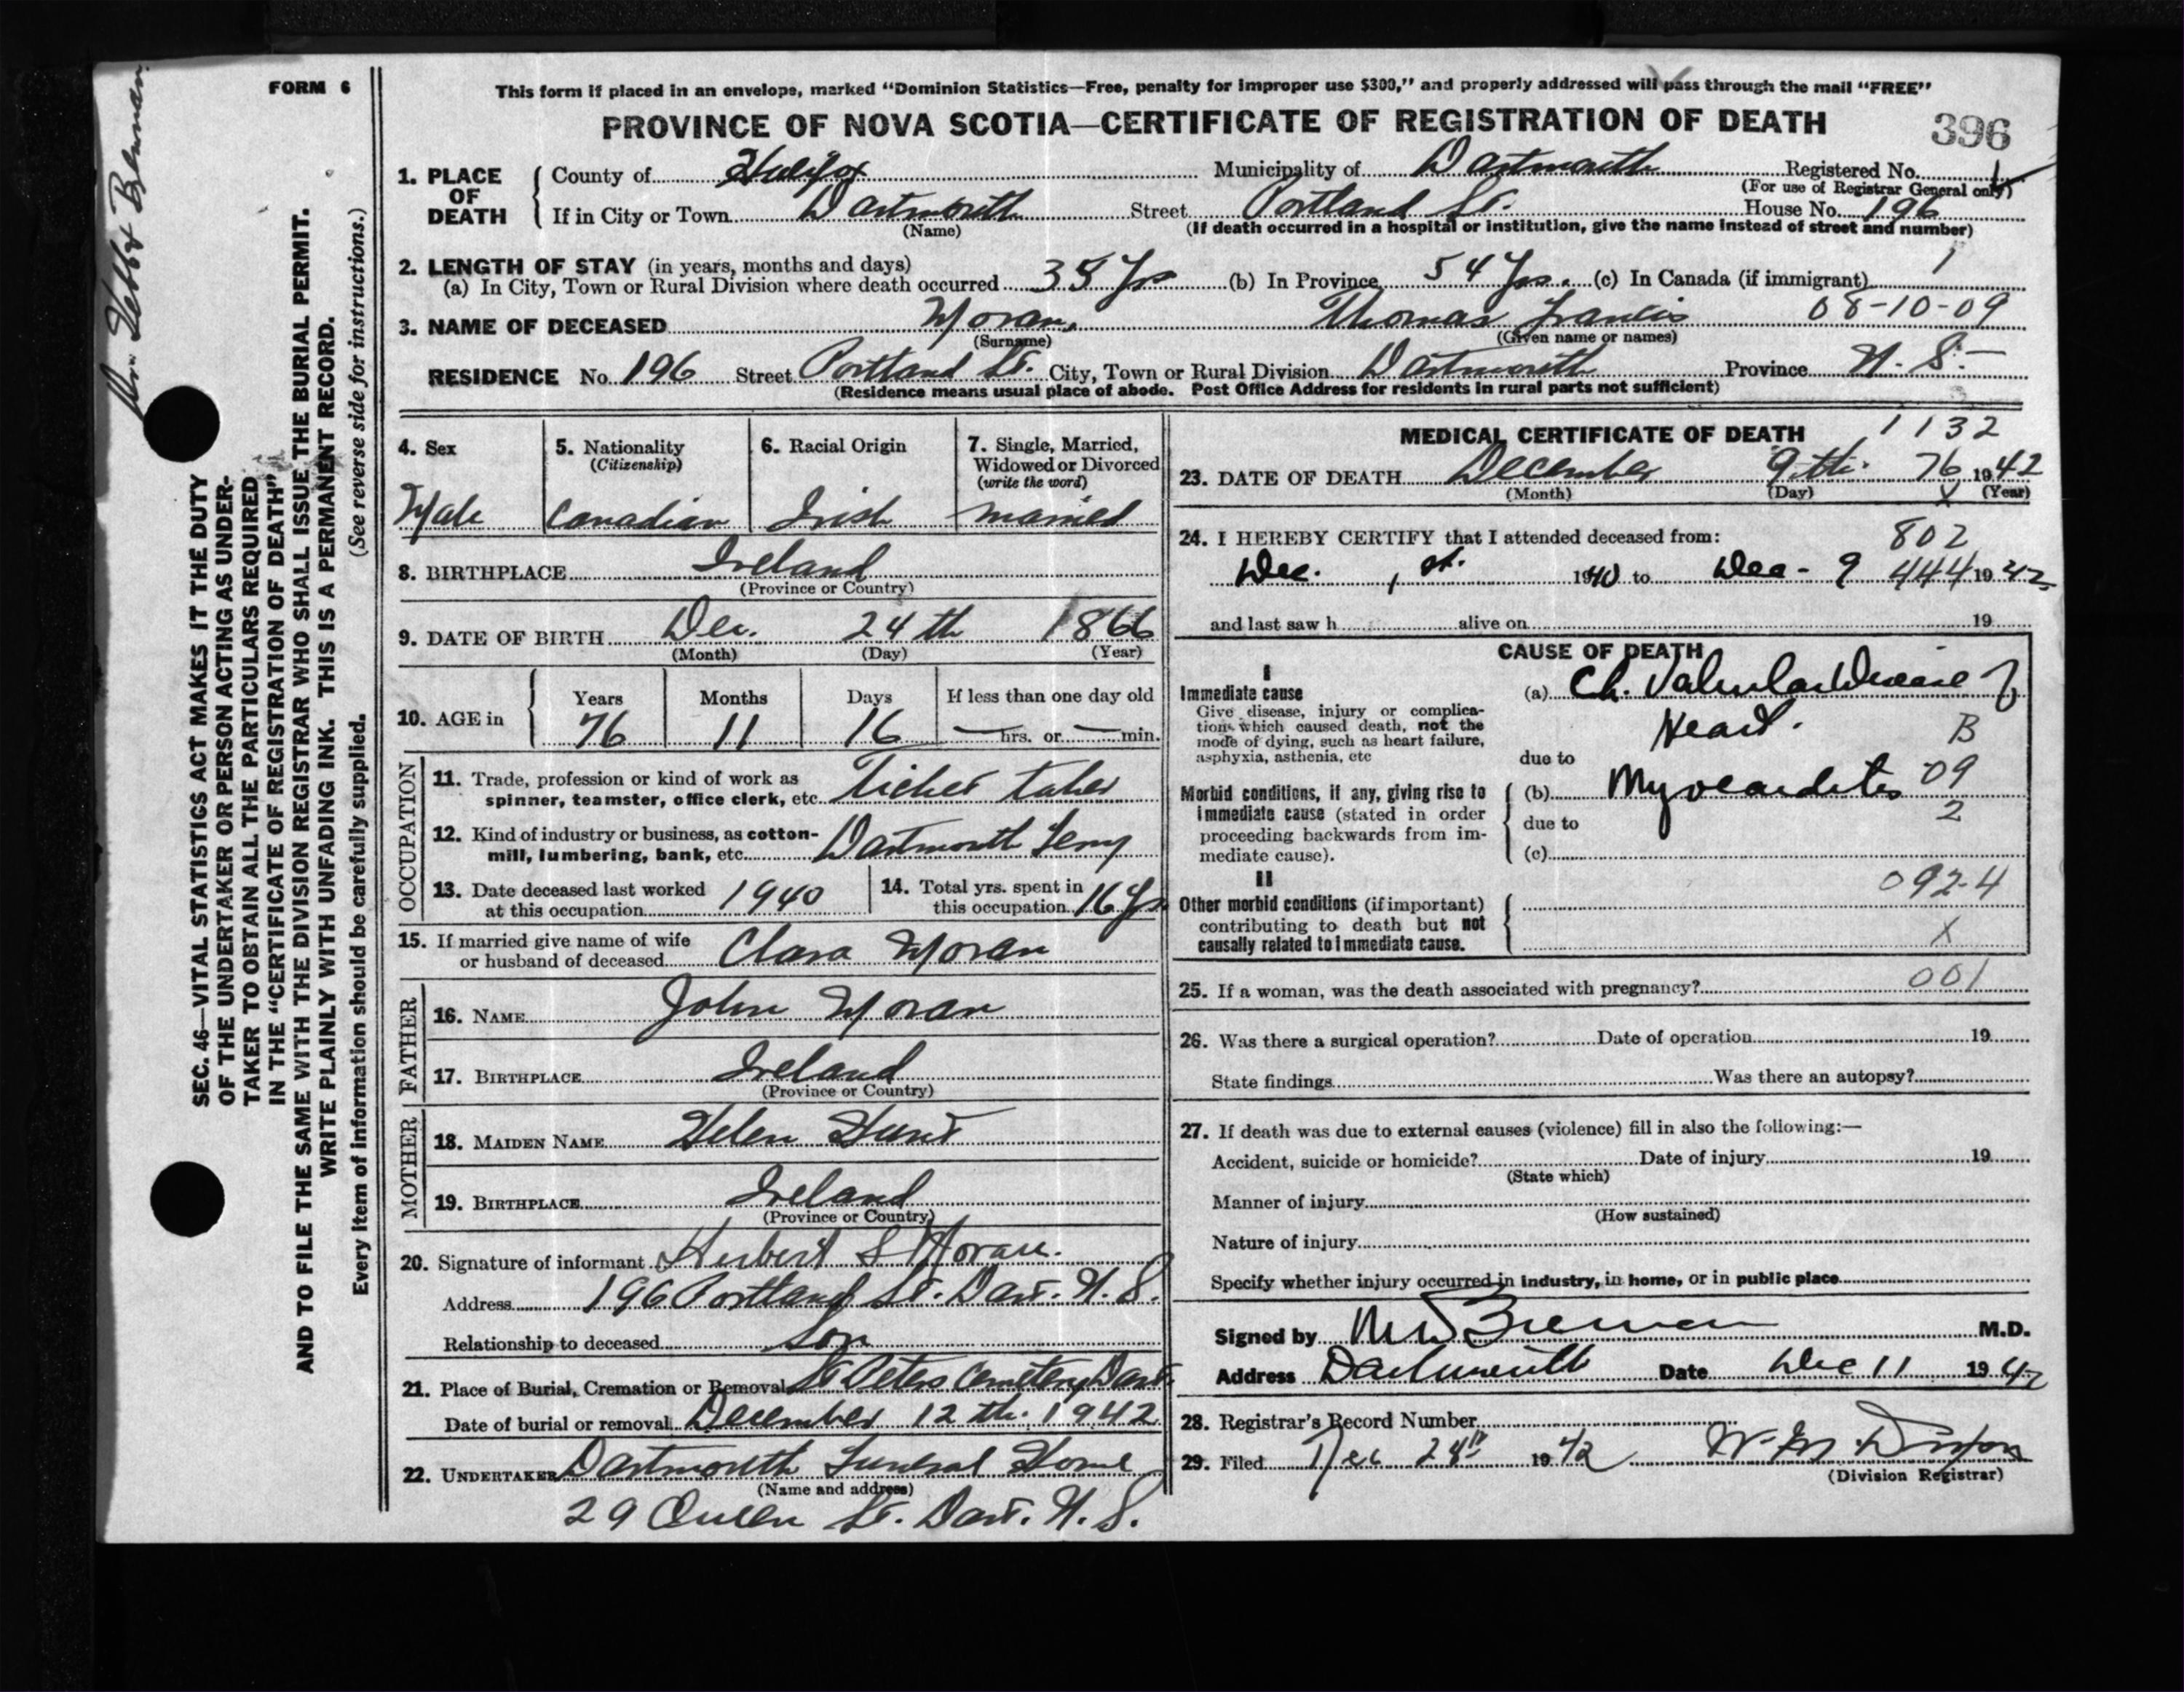 FORM 6
This form if placed in an envelope, marked "Dominion Statistics—Free, penalty for improper use $300," and properly addressed will pass through the mail "FREE"
PROVINCE OF NOVA SCOTIA—CERTIFICATE OF REGISTRATION OF DEATH
396
1. PLACE OF DEATH
County of Halifax Municipality of Dartmouth Registered No.
(For use of Registrar General only)
If in City or Town Dartmouth Street Portland St. House No. 196
(Name) (If death occurred in a hospital or institution, give the name instead of street and number)
2. LENGTH OF STAY (in years, months and days)
(a) In City, Town or Rural Division where death occurred 38 Yrs (b) In Province 54 Yrs. (c) In Canada (if immigrant) 1
3. NAME OF DECEASED Moran, Thomas Francis 08-10-09
(Surname) (Given name or names)
RESIDENCE No. 196 Street Portland St. City, Town or Rural Division Dartmouth Province N. S.
(Residence means usual place of abode. Post Office Address for residents in rural parts not sufficient)
4. Sex
Male
5. Nationality
(Citizenship)
Canadian
6. Racial Origin
Irish
7. Single, Married,
Widowed or Divorced
(write the word)
married
8. BIRTHPLACE Ireland
(Province or Country)
9. DATE OF BIRTH Dec. 24th 1866
(Month) (Day) (Year)
10. AGE in
Years Months Days If less than one day old
76 11 16 — hrs. or — min.
OCCUPATION
11. Trade, profession or kind of work as
spinner, teamster, office clerk, etc. Ticket taker
12. Kind of industry or business, as cotton-
mill, lumbering, bank, etc. Dartmouth Ferry
13. Date deceased last worked
at this occupation 1940
14. Total yrs. spent in
this occupation 16 Yrs
15. If married give name of wife
or husband of deceased Clara Moran
FATHER
16. NAME John Moran
17. BIRTHPLACE Ireland
(Province or Country)
MOTHER
18. MAIDEN NAME Helen Hunt
19. BIRTHPLACE Ireland
(Province or Country)
20. Signature of informant Herbert S Moran.
Address 196 Portland St. Dart. N. S.
Relationship to deceased Son
21. Place of Burial, Cremation or Removal St Peters Cemetery Dart.
Date of burial or removal December 12th. 1942
22. UNDERTAKER Dartmouth Funeral Home
(Name and address)
29 Queen St. Dart. N. S.
MEDICAL CERTIFICATE OF DEATH 1132
23. DATE OF DEATH December 9th. 76 1942
(Month) (Day) X (Year)
24. I HEREBY CERTIFY that I attended deceased from: 802
Dec. 1 st. 1940 to Dec - 9 444 1942
and last saw h alive on 19
CAUSE OF DEATH
I
Immediate cause
Give disease, injury or complica-
tions which caused death, not the
mode of dying, such as heart failure,
asphyxia, asthenia, etc
(a) Ch. Valvular Disease of
Heart. B
due to
Morbid conditions, if any, giving rise to
immediate cause (stated in order
proceeding backwards from im-
mediate cause).
(b) Myocarditis 09
due to 2
(c)
II
Other morbid conditions (if important)
contributing to death but not
causally related to immediate cause.
092-4
X
25. If a woman, was the death associated with pregnancy? 001
26. Was there a surgical operation? Date of operation 19
State findings Was there an autopsy?
27. If death was due to external causes (violence) fill in also the following:—
Accident, suicide or homicide? Date of injury 19
(State which)
Manner of injury
(How sustained)
Nature of injury
Specify whether injury occurred in industry, in home, or in public place
Signed by M.D.
Address Dartmouth Date Dec 11 1942
28. Registrar's Record Number
29. Filed Dec 28th 1942
(Division Registrar)
SEC. 46—VITAL STATISTICS ACT MAKES IT THE DUTY
OF THE UNDERTAKER OR PERSON ACTING AS UNDER-
TAKER TO OBTAIN ALL THE PARTICULARS REQUIRED
IN THE "CERTIFICATE OF REGISTRATION OF DEATH"
AND TO FILE THE SAME WITH THE DIVISION REGISTRAR WHO SHALL ISSUE THE BURIAL PERMIT.
WRITE PLAINLY WITH UNFADING INK. THIS IS A PERMANENT RECORD.
Every item of information should be carefully supplied. (See reverse side for instructions.)